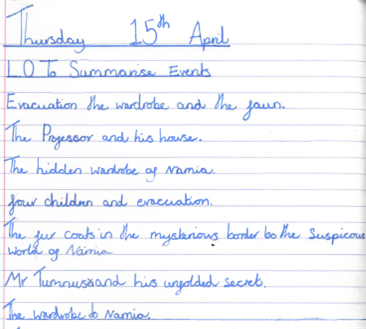 Thursday 15th April
LO To Summarise Events
Evacuation the wardrobe and the faun.
The Professor and his house.
The hidden wardrobe of Narnia.
four children and evacuation.
The fur coats in the mysterious border to the Suspicous
World of Narnia.
Mr Tumnus and his unfolded secret.
The wardrobe to Narnia.